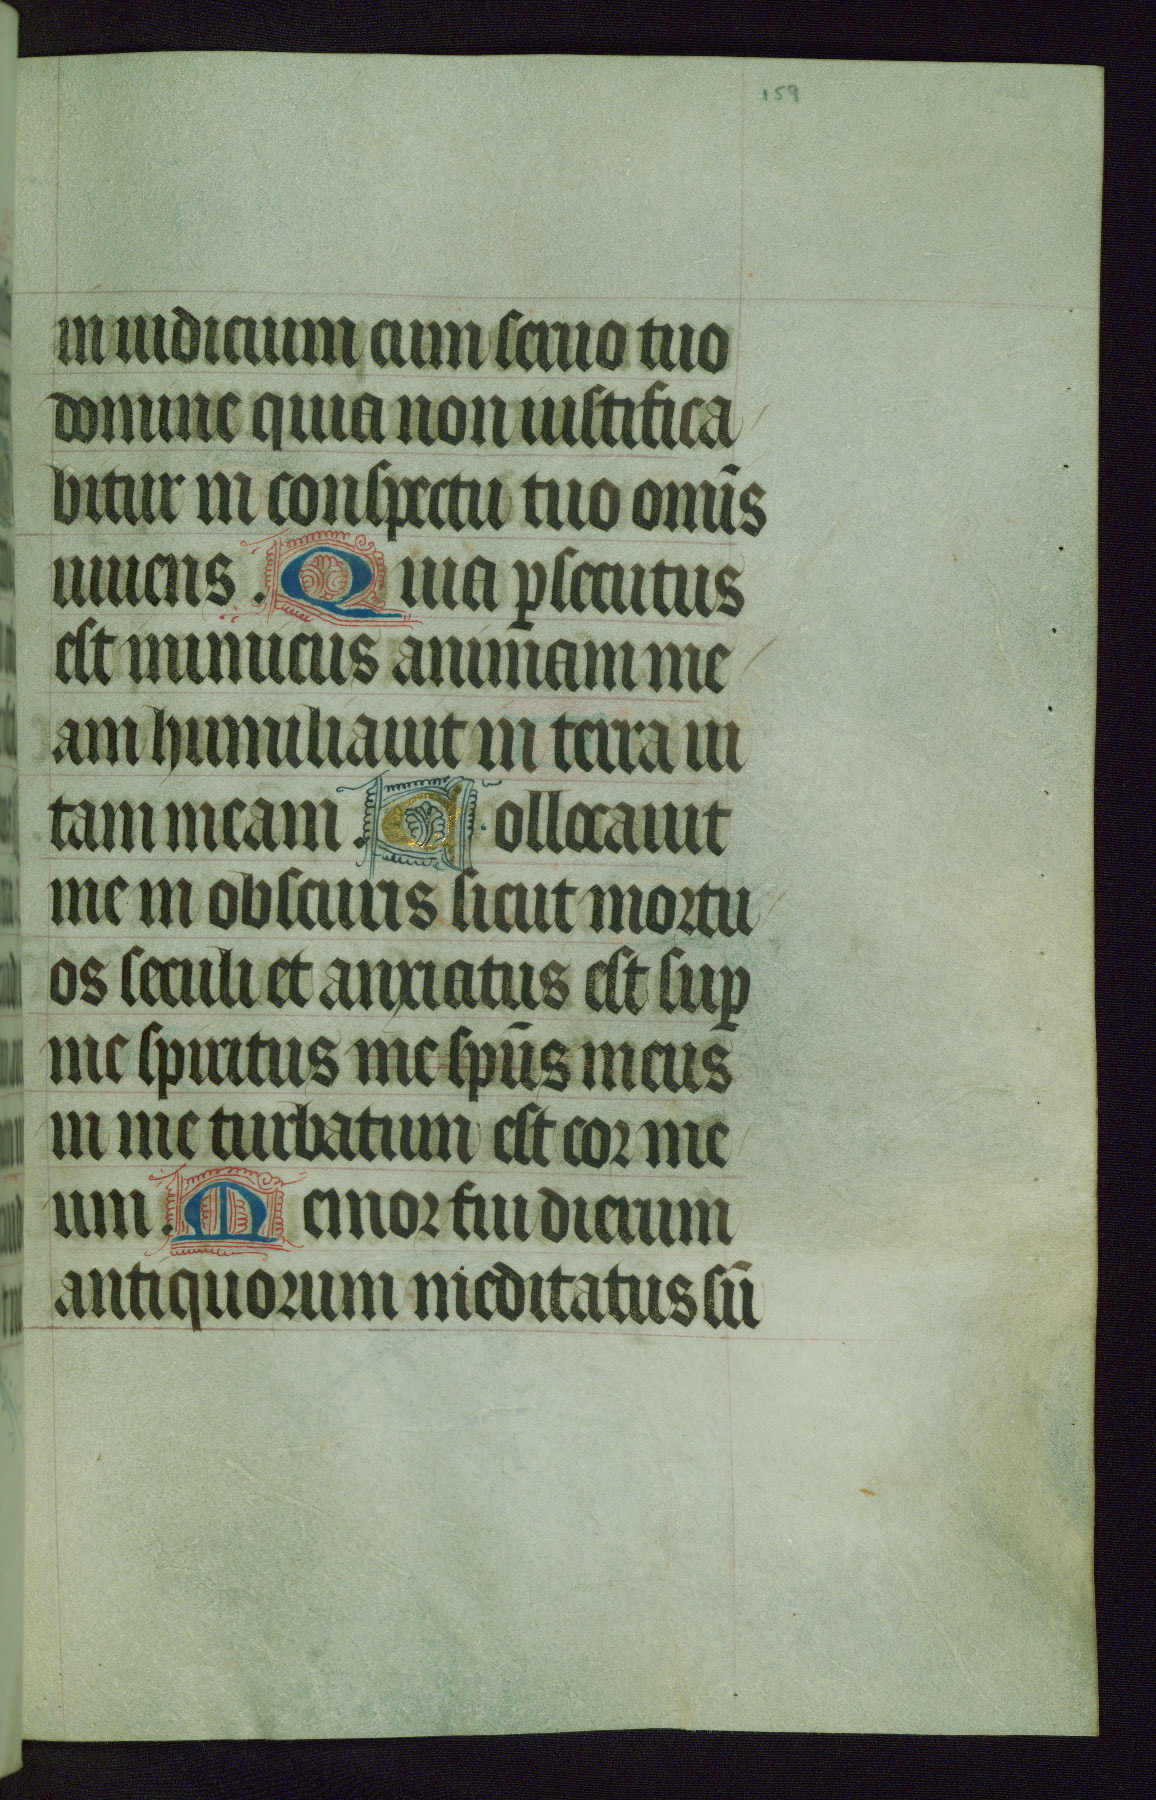 159
in iudicium cum seruo tuo
domine quia non iustifica
bitur in conspectu tuo om̄s
uiuens . Quia ꝑsecutus
est inimicus animam me
am humiliauit in terra ui
tam meam . Collocauit
me in obscuris sicut mortu
os seculi et anxiatus est suꝑ
me spiritus me sp̄us meus
in me turbatum est cor me
um . Memor fui dierum
antiquorum meditatus sū